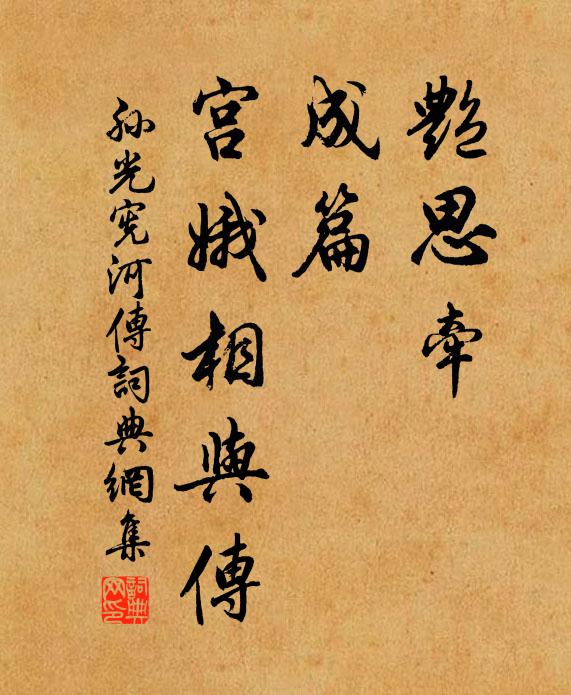 艷思牽
成篇
宮娥相與傳
孫光憲河傳詞典網集
詞典
网印